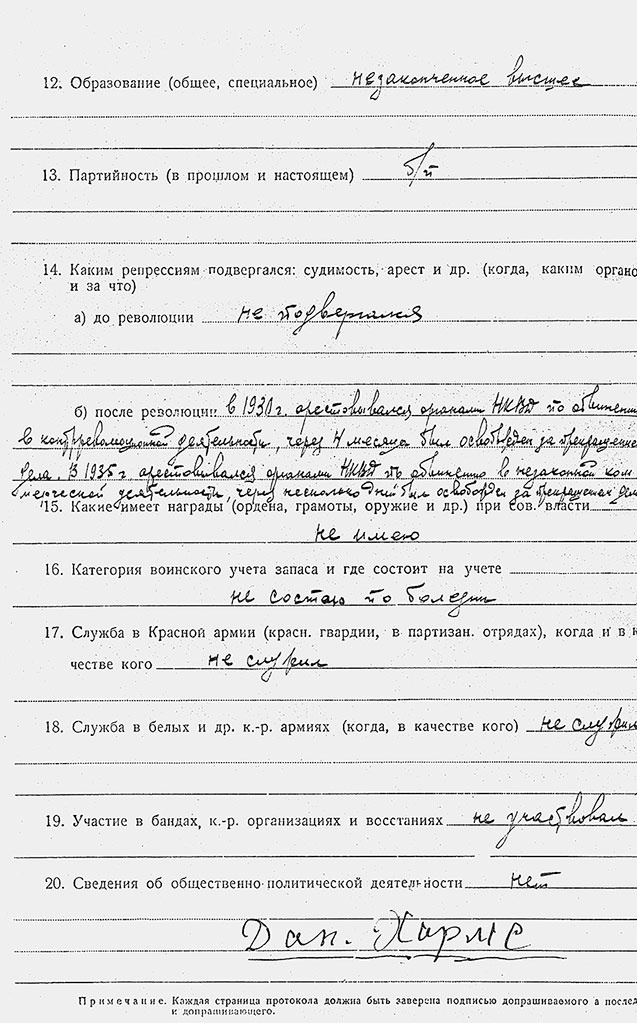 12. Образование (общее, специальное) незаконченное высшее
13. Партийность (в прошлом и настоящем) б/п
14. Каким репрессиям подвергался: судимость, арест и др. (когда, каким органо
и за что)
а) до революции не подвергался
б) после революции в 1930 г. арестовывался органами НКВД по обвинени
в контрреволюционной деятельности, через 4 месяца был освобожден за прекращение
дела. В 1935 г. арестовывался органами НКВД по обвинению в незаконной ком
мерческой деятельности, через несколько дней был освобожден за прекращением дела
15. Какие имеет награды (ордена, грамоты, оружие и др.) при сов. власти
не имею
16. Категория воинского учета запаса и где состоит на учете
не состою по болезни
17. Служба в Красной армии (красн. гвардии, в партизан. отрядах), когда и в к
честве кого не служил
18. Служба в белых и др. к.-р. армиях (когда, в качестве кого) не служил
19. Участие в бандах, к.-р. организациях и восстаниях не участвовал
20. Сведения об общественно-политической деятельности нет
Дан. Хармс
Примечание. Каждая страница протокола должна быть заверена подписью допрашиваемого а послед
и допрашивающего.